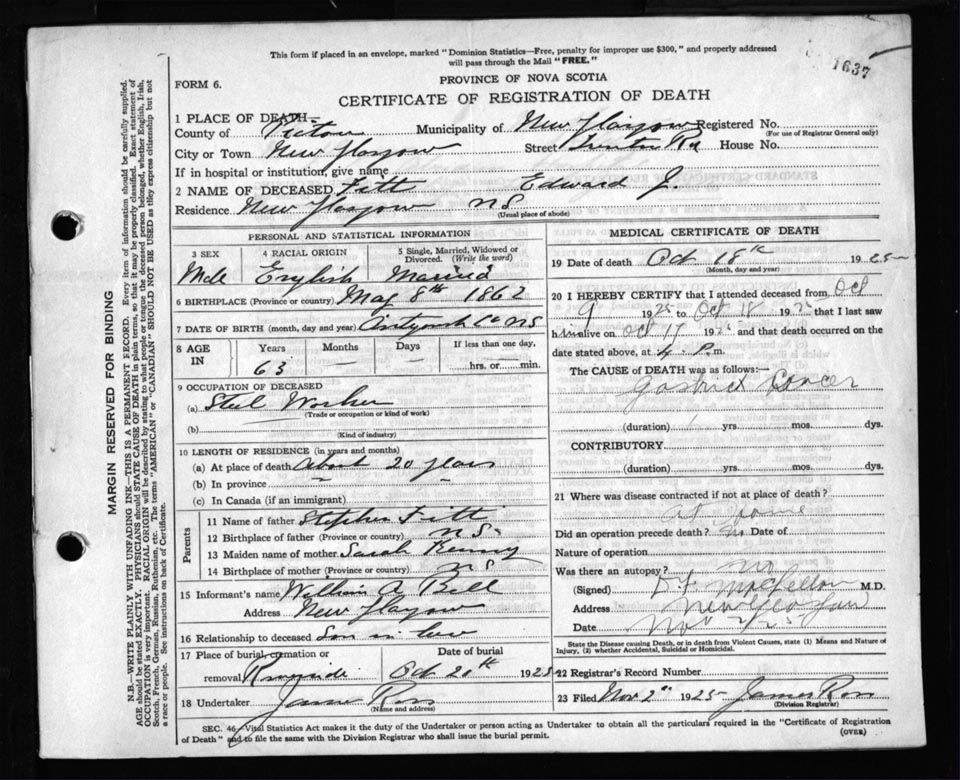 This form if placed in an envelope, marked "Dominion Statistics—Free, penalty for improper use $300," and properly addressed
will pass through the Mail "FREE."
1637
FORM 6.
PROVINCE OF NOVA SCOTIA
CERTIFICATE OF REGISTRATION OF DEATH
1 PLACE OF DEATH—
County of Pictou Municipality of New Glasgow Registered No.
(For use of Registrar General only)
City or Town New Glasgow Street Trenton Rd House No.
If in hospital or institution, give name
2 NAME OF DECEASED Fitt Edward J.
Residence New Glasgow NS
(Usual place of abode)
PERSONAL AND STATISTICAL INFORMATION
3 SEX 4 RACIAL ORIGIN 5 Single, Married, Widowed or
Divorced. (Write the word)
Male English Married
6 BIRTHPLACE (Province or country) May 8th 1862
7 DATE OF BIRTH (month, day and year) Antigonish Co NS
8 AGE IN Years Months Days If less than one day,
63 hrs. or min.
9 OCCUPATION OF DECEASED
(a) Steel Worker
(Trade or occupation or kind of work)
(b)
(Kind of industry)
10 LENGTH OF RESIDENCE (in years and months)
(a) At place of death About 20 years
(b) In province
(c) In Canada (if an immigrant)
Parents
11 Name of father Stephen Fitt
12 Birthplace of father (Province or country) NS
13 Maiden name of mother Sarah Kenny
14 Birthplace of mother (Province or country) NS
15 Informant's name William A Bell
Address New Glasgow
16 Relationship to deceased Son in law
17 Place of burial, cremation or Date of burial
removal Riverside Oct 20th 1925
18 Undertaker James Ross
(Name and address)
MEDICAL CERTIFICATE OF DEATH
19 Date of death Oct 18th 1925
(Month, day and year)
20 I HEREBY CERTIFY that I attended deceased from Oct
9 1925 to Oct 18 1925 that I last saw
him alive on Oct 17 1925 and that death occurred on the
date stated above, at P.m.
The CAUSE of DEATH was as follows:—
Gastric Cancer
(duration) yrs. mos. dys.
CONTRIBUTORY
(duration) yrs. mos. dys.
21 Where was disease contracted if not at place of death?
At home
Did an operation precede death? No Date of
Nature of operation
Was there an autopsy? no
(Signed) M.D.
Address New Glasgow
Date Nov 2/25
State the Disease causing Death, or in death from Violent Causes, state (1) Means and Nature of
Injury, (2) whether Accidental, Suicidal or Homicidal.
22 Registrar's Record Number
23 Filed Nov 2nd 1925 James Ross
(Division Registrar)
SEC. 46, Vital Statistics Act makes it the duty of the Undertaker or person acting as Undertaker to obtain all the particulars required in the "Certificate of Registration
of Death" and to file the same with the Division Registrar who shall issue the burial permit.
(OVER)
MARGIN RESERVED FOR BINDING
N.B.—WRITE PLAINLY WITH UNFADING INK—THIS IS A PERMANENT RECORD. Every item of information should be carefully supplied.
AGE should be stated EXACTLY. PHYSICIANS should STATE CAUSE OF DEATH in plain terms, so that it may be properly classified. Exact statement of
OCCUPATION is very important. RACIAL ORIGIN will be described by stating to what people or tongue the deceased person belonged, whether English, Irish,
Scotch, French, German, Russian, Ruthenian, etc. The terms "AMERICAN" or "CANADIAN" SHOULD NOT BE USED as they express citizenship but not
a race or people. See instructions on back of Certificate.